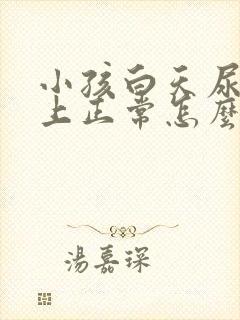 小孩白天尿
上正常怎麽
湯嘉琛